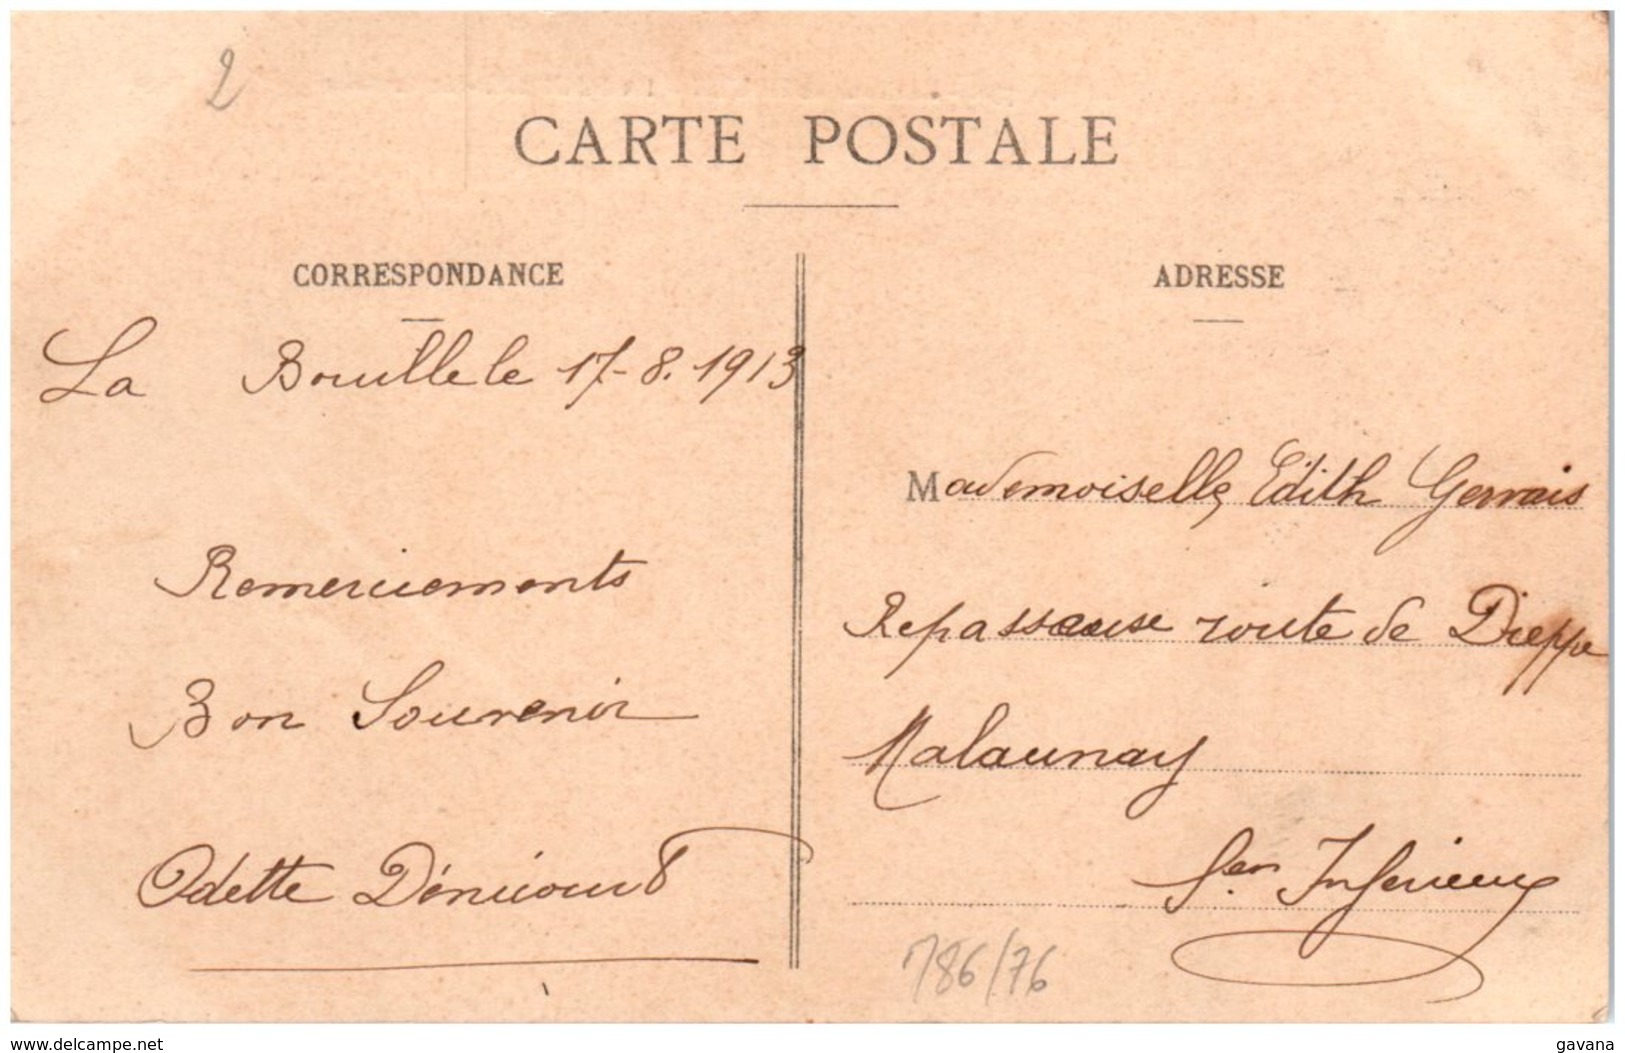 2
CARTE POSTALE
CORRESPONDANCE
La Bouille le 17-8.1913
Remerciements
Bon Souvenir
Odette Dénicourt
ADRESSE
Mademoiselle Edith Gervais
Repasseuse route de Dieppe
Malaunay
Sen Inferieure
786/76
www.delcampe.net
gavana